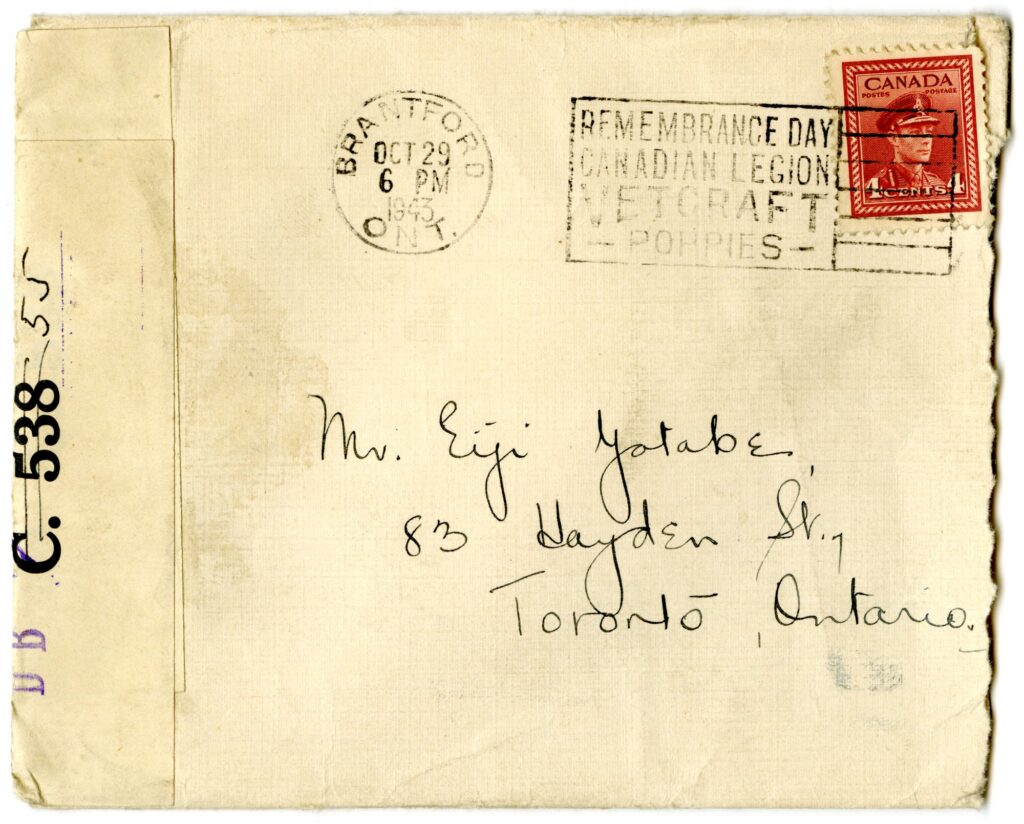 BRANTFORD
OCT 29
6 PM
1943
ONT.
REMEMBRANCE DAY
CANADIAN LEGION
VETCRAFT
- POPPIES -
CANADA
POSTES POSTAGE
4 CENTS 4
C. 538
55
D B
Mr. Eiji Yatabe,
83 Hayden St.,
Toronto, Ontario.